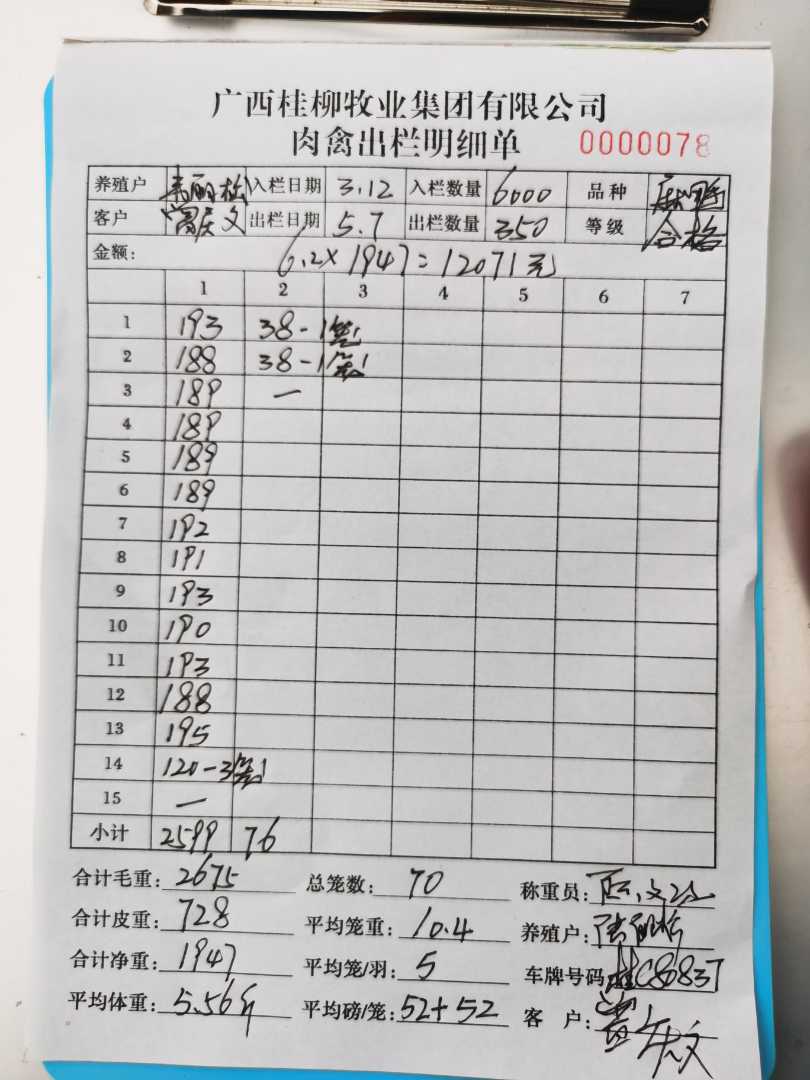 广西桂柳牧业集团有限公司
肉禽出栏明细单 0000078
养殖户 入栏日期 3.12 入栏数量 6000 品种 麻鸭
客户 出栏日期 5.7 出栏数量 350 等级 合格
金额: 6.2×1947=12071元
1 2 3 4 5 6 7
1 193 38-1笼
2 188 38-1笼
3 189 一
4 189
5 189
6 189
7 192
8 191
9 193
10 190
11 193
12 188
13 195
14 120-3笼
15 一
小计 2599 76
合计毛重: 2675 总笼数: 70 称重员:
合计皮重: 728 平均笼重: 10.4 养殖户:
合计净重: 1947 平均笼/羽: 5 车牌号码
平均体重: 5.56斤 平均磅/笼: 52+52 客 户: